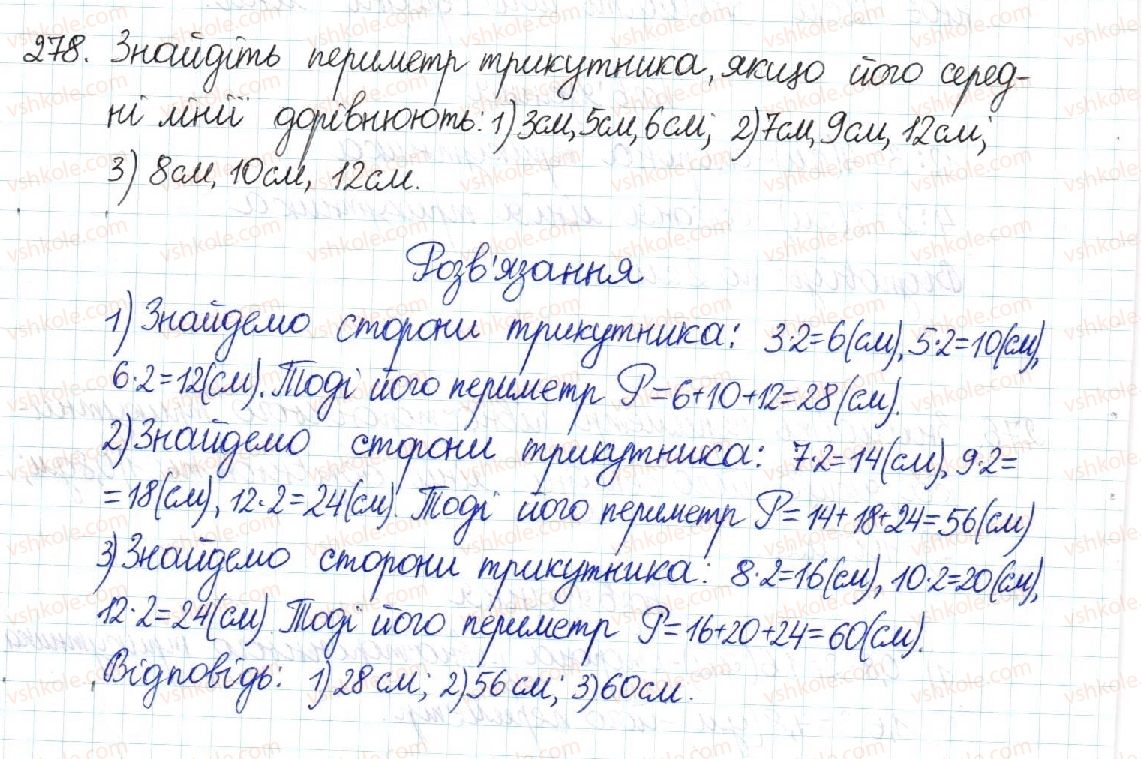 278. Знайдіть периметр трикутника, якщо його серед-
ні лінії дорівнюють: 1) 3см, 5см, 6см; 2) 7см, 9см, 12см;
3) 8см, 10см, 12см.
Розв'язання
1) Знайдемо сторони трикутника: 3·2=6(см), 5·2=10(см),
6·2=12(см). Тоді його периметр P=6+10+12=28(см).
2) Знайдемо сторони трикутника: 7·2=14(см), 9·2=
=18(см), 12·2=24(см). Тоді його периметр P=14+18+24=56(см)
3) Знайдемо сторони трикутника: 8·2=16(см), 10·2=20(см),
12·2=24(см). Тоді його периметр P=16+20+24=60(см).
Відповідь: 1) 28см; 2) 56см; 3) 60см.
vshkole.com